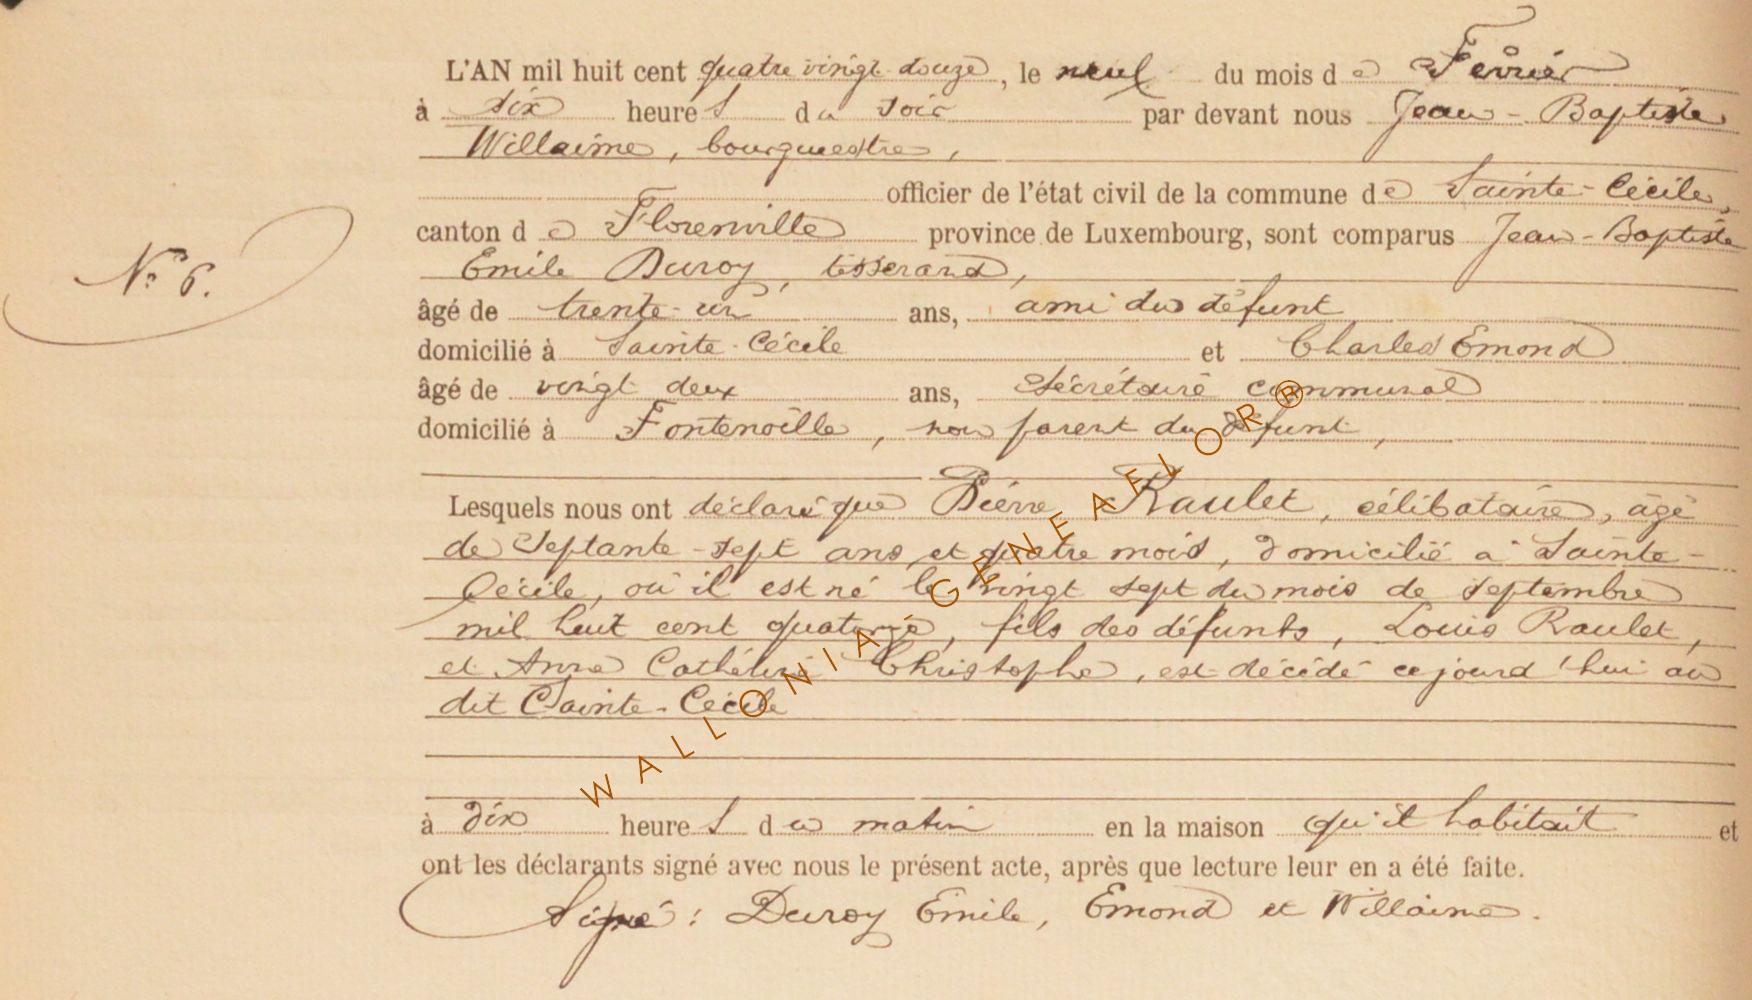 L'AN mil huit cent quatre vingt douze, le neuf du mois de Février
à six heures du soir par devant nous Jean-Baptiste
Willaime, bourguestre,
officier de l'état civil de la commune de Sainte-Cécile,
canton de Florenville province de Luxembourg, sont comparus Jean-Baptiste
Emile Duroy, tisserand,
âgé de trente-un ans, ami du défunt
domicilié à Sainte-Cécile et Charles Emond
âgé de vingt deux ans, sécrétaire communal
domicilié à Fontenoille, non parent du défunt,
N° 6.
Lesquels nous ont déclaré que Pierre Raulet, célibataire, âgé
de septante-sept ans et quatre mois, domicilié à Sainte-
Cécile, où il est né le vingt sept du mois de septembre
mil huit cent quatorze, fils des défunts, Louis Raulet,
et Anne Cathérine Christophe, est décédé ce jourd'hui au
dit Sainte-Cécile
WALLONIA GENEAFLOR®
à dix heures du matin en la maison qu'il habitait et
ont les déclarants signé avec nous le présent acte, après que lecture leur en a été faite.
Signé : Duroy Emile, Emond et Willaime.